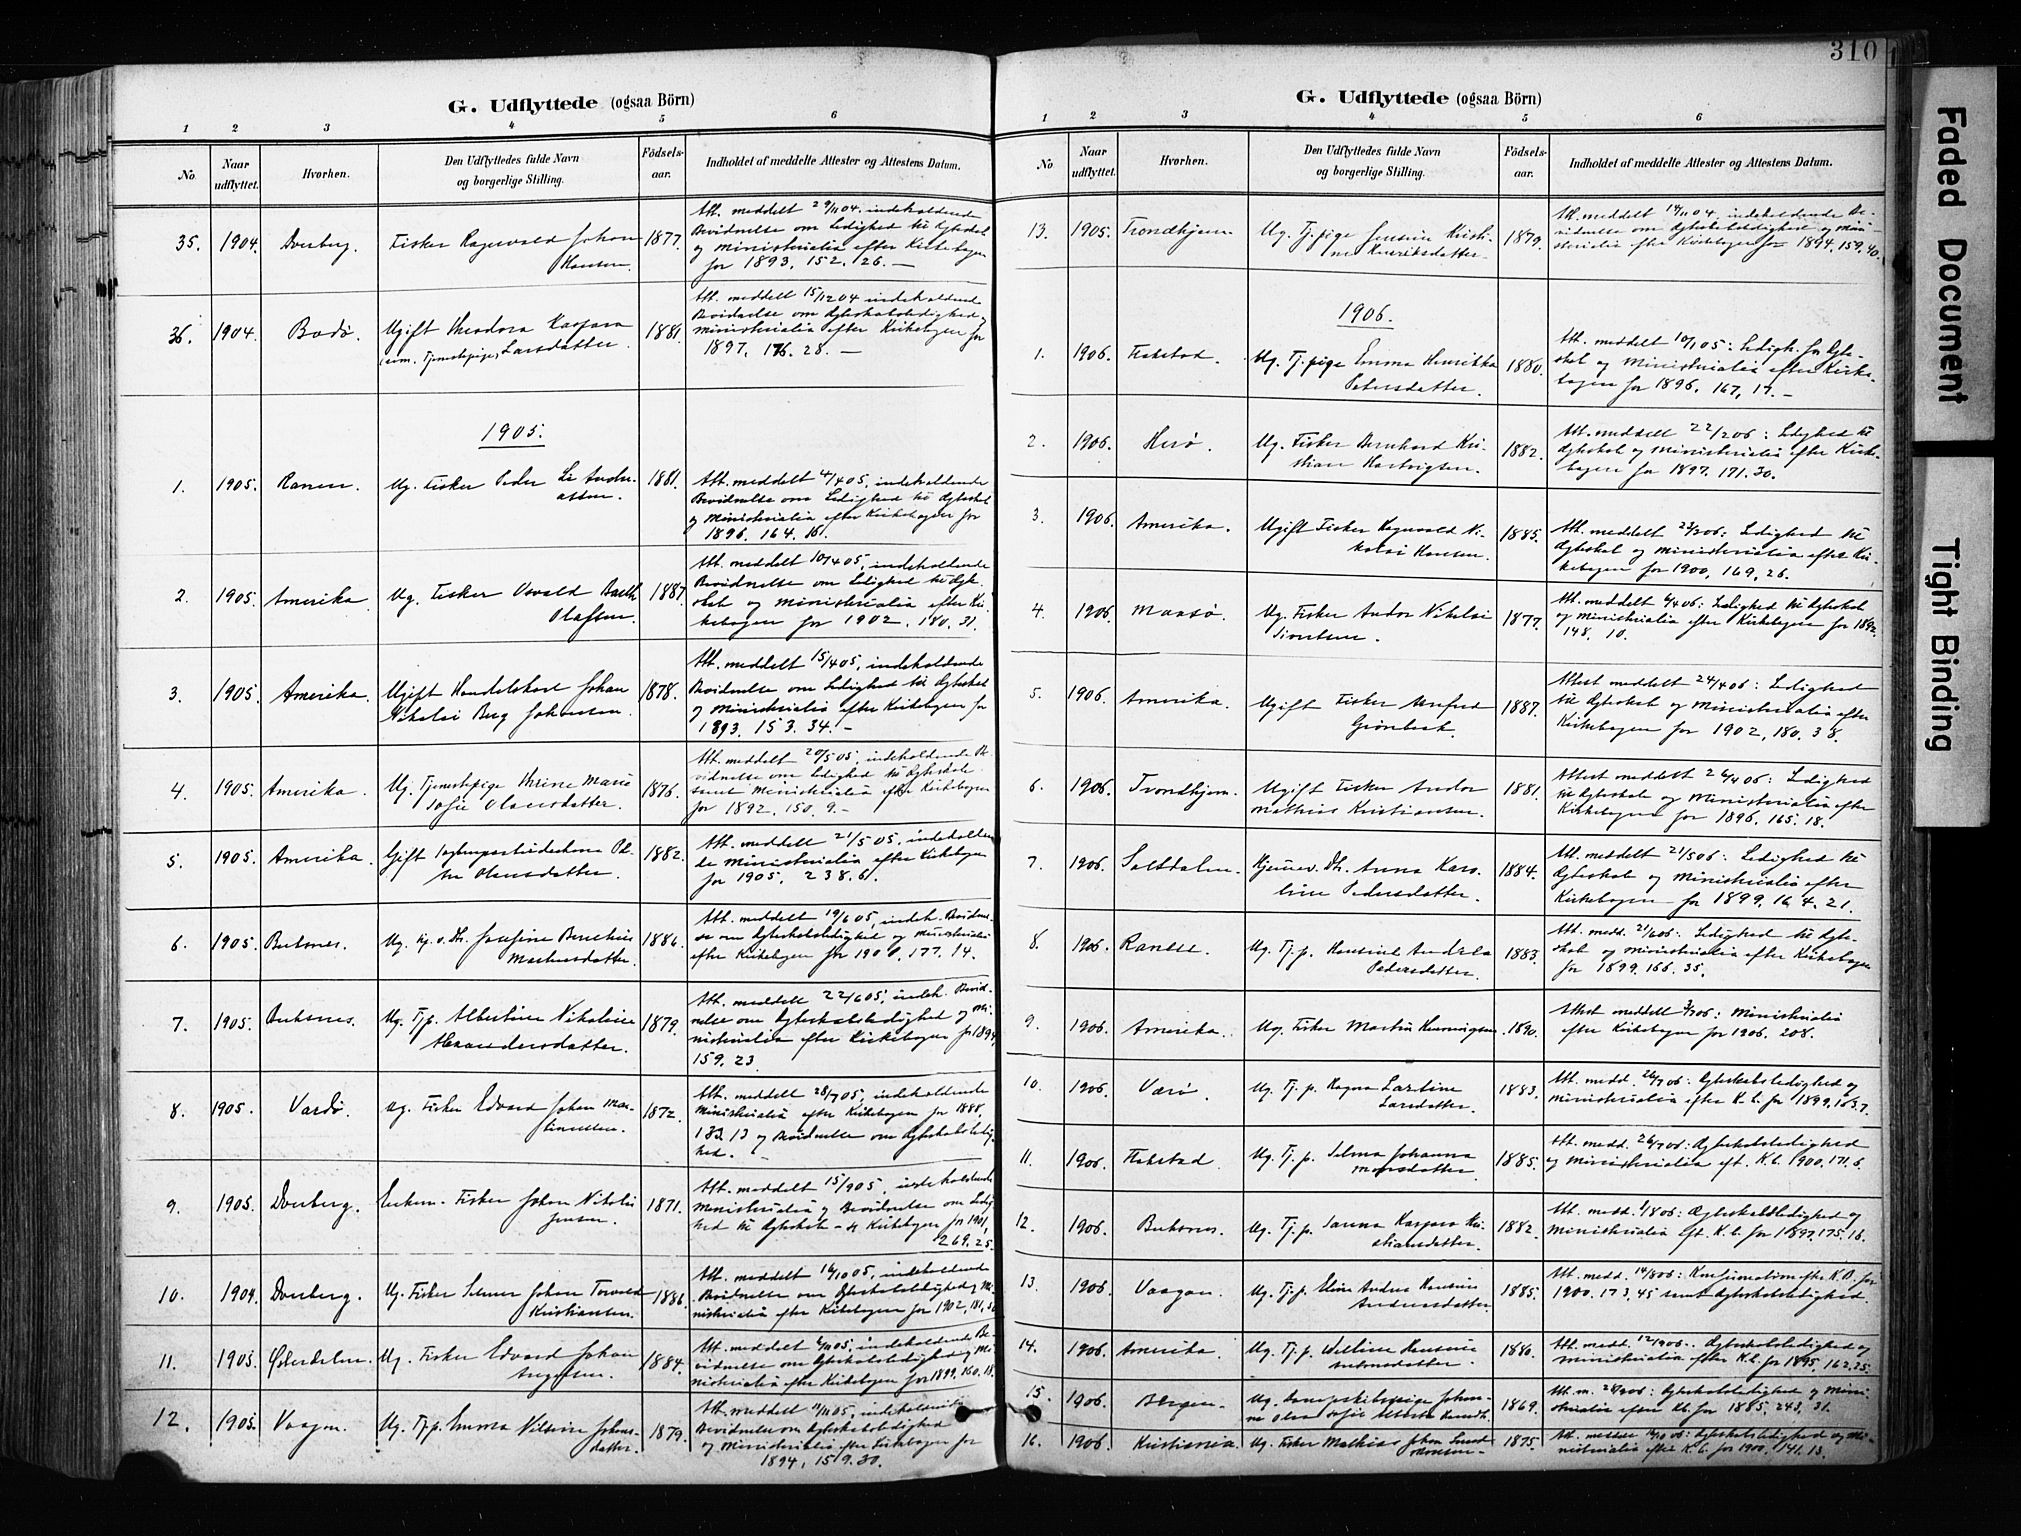 310
G. Udflyttede (ogsaa Börn)
1 2 3 4 5 6
No. Naar udflyttet. Hvorhen. Den Udflyttedes fulde Navn og borgerlige Stilling. Födsels-aar. Indholdet af meddelte Attester og Attestens Datum.
35. 1904. Dverberg. Fisker Ragnvald Johan Hansen. 1877. Att. meddelt 29/11 04. indeholdende
Bevidnelse om Ledighed til Egteskab
og Ministerialia efter Kirkebogen
for 1893. 152. 26. —
36. 1904. Bodö. Ugift Theodora Kaspara Larsdatter. 1881. Att. meddelt 15/12 04 indeholdende
Bevidnelse om Egteskabsledighed og
Ministerialia efter Kirkebogen for
1897. 176. 28. —
1905.
1. 1905. Ranen. Ug. Fisker Peder Li Andreassen. 1881. Att. meddelt 4/4 05, indeholdende
Bevidnelse om Ledighed til Egteskab
og Ministerialia efter Kirkebogen for
1896. 164. 16.
2. 1905. Amerika. Ug. Fisker Osvald Olafsen. 1887. Att. meddelt 10/4 05, indeholdende
Bevidnelse om Ledighed til Egteskab og Ministerialia efter Kirkebogen for 1902. 180. 31.
3. 1905. Amerika. Ugift Johan Nikolai Berg Johansen. 1878. Att. meddelt 15/4 05, indeholdende
Bevidnelse om Ledighed til Egteskab
og Ministerialia efter Kirkebogen for
1893. 153. 34. —
4. 1905. Amerika. Ug. Tjenestepige Marie Sofie Olausdatter. 1876. Att. meddelt 20/5 05, indeholdende Bevidnelse om Ledighed til Egteskab
samt Ministerialia efter Kirkebogen
for 1892. 150. 9. —
5. 1905. Amerika. Gift Olausdatter. 1882. Att. meddelt 21/5 05, indeholdende Ministerialia efter Kirkebogen
for 1905. 238. 6.
6. 1905. Buksnes. Ug. Josefine Martinusdatter. 1886. Att. meddelt 19/6 05, indeh. Bevidnelse om Egteskabsledighed og Ministerialia
efter Kirkebogen for 1900. 177. 14.
7. 1905. Buksnes. Ug. Tjp. Albertine Nikoline 1879. Att. meddelt 22/6 05, indeh. Bevidnelse om Egteskabsledighed og Ministerialia efter Kirkebogen for 1894
159. 23
8. 1905. Vardö. Ug. Fisker Edvard Johan 1872. Att. meddelt 28/7 05, indeholdende
Ministerialia efter Kirkebogen for
133. 13 og Bevidnelse om Egteskabsledighed. —
9. 1905. Dverberg. Enkem. Fisker Johan Nikolai Jensen. 1871. Att. meddelt 15/9 05, indeholdende
Ministerialia og Bevidnelse om Ledighed til Egteskab — Kirkebogen for 1901,
269. 25.
10. Dverberg. Ug. Fisker Johan Torvald Kristiansen. 1886. Att. meddelt 16/10 05, indeholdende
Bevidnelse om Egteskabsledighed og Ministerialia efter Kirkebogen for 1902, 181,
11. 1905. Ug. Fisker Edvard Johan 1884. Att. meddelt indeholdende Bevidnelse om Egteskabsledighed og Ministerialia efter Kirkebogen for 1899. 160. 18.
12. 1905. Vaagan. Ug. Tjp. Emma 1879. Att. meddelt indeholdende
Bevidnelse om Egteskabsledighed
og Ministerialia efter Kirkebogen for
1894, 159. 30.
G. Udflyttede (ogsaa Börn)
1 2 3 4 5 6
No Naar udflyttet. Hvorhen. Den Udflyttedes fulde Navn og borgerlige Stilling. Födsels-aar. Indholdet af meddelte Attester og Attestens Datum.
13. 1905. Trondhjem. Ug. Tj.pige Jensine Kristine Henriksdatter. 1879. Att. meddelt 14/11 04, indeholdende Bevidnelse om Egteskabsledighed og Ministerialia efter Kirkebogen for 1894. 159. 40.
1906.
1. 1906. Flakstad. Ug. Tj.pige Emma Henrikka Petersdatter. 1880. Att. meddelt 10/1 05: Ledigh. for Egteskab og Ministerialia efter Kirkebogen for 1896, 167, 17. —
2. 1906. Herö. Ug. Fisker Bernhard Kristian Hartvigsen. 1882. Att. meddelt 22/2 06: Ledighed til
Egteskab og Ministerialia efter Kirkebogen for 1897. 171. 30.
3. 1906. Amerika. Ugift Fisker Ragnvald Nikolai Hansen. 1885. Att. meddelt 23/2 06: Ledighed til
Egteskab og Ministerialia efter Kirkebogen for 1900, 169, 26.
4. 1906. Maasö. Ug. Fisker Andor Nikolai Sivertsen. 1877. Att. meddelt 6/4 06: Ledighed til Egteskab
og Ministerialia efter Kirkebogen for 1892.
148. 10.
5. 1906. Amerika. Ugift Fisker Grönbeck. 1887. Attest meddelt 24/4 06: Ledighed
til Egteskab og Ministerialia efter
Kirkebogen for 1902, 180. 38.
6. 1906. Trondhjem. Ugift Fisker Andor Mathias Kristiansen. 1881. Attest meddelt 26/4 06: Ledighed
til Egteskab og Ministerialia efter
Kirkebogen for 1896. 165. 18.
7. 1906. Saltdalen. Anna Karoline Pedersdatter. 1884. Att. meddelt 21/5 06: Ledighed til
Egteskab og Ministerialia efter
Kirkebogen for 1899. 164. 21.
8. 1906. Ranen. Ug. Tj. p. Pedersdatter. 1883. Att. medd. 21/6 06: Ledighed til Egteskab og Ministerialia efter Kirkebogen
for 1899. 166. 35.
9. 1906. Amerika. Ug. Fisker Martin Henningsen 1890. Attest meddelt 3/7 06: Ministerialia
efter Kirkebogen for 1906. 208.
10. 1906. Værö. Ug. Tj. p. Ragna Larsdatter. 1883. Att. medd. 26/7 06: Egteskabsledighed og
Ministerialia efter K. b. for 1899. 163. 7.
11. 1906. Flakstad. Ug. Tj. p. Selma Johanna 1885. Att. medd. 26/7 06: Egteskabsledighed
og Ministerialia eft. K. b. 1900. 171. 6.
12. 1906. Buksnes. Ug. Tj. p. Kaspara Kristiansdatter. 1882. Att. medd. 1/8 06: Egteskabsledighed og
Ministerialia eft. K. b. for 1897. 175. 16.
13. 1906. Vaagan. Ug. Tj. p. Andersdatter. 1885. Att. medd. 14/8 06: Konfirmation efter K. B. for
1900. 173. 45 samt Egteskabsledighed.
14. 1906. Amerika. Ug. Tj. p. 1880. Att. medd. 12/9 06. Egteskabsledighed og
Ministerialia efter K. b. for 1895. 162. 25.
15. 1906. Bergen. Ug. 1869. Egteskabsledighed og Ministerialia efter Kb. for 1885, 243, 31.
16. 1906. Kristiania. Ug. Fisker Mathias Johan 1875. Egteskabsledighed og Ministerialia efter K. b. for 1900. 141. 13.
Faded Document
Tight Binding